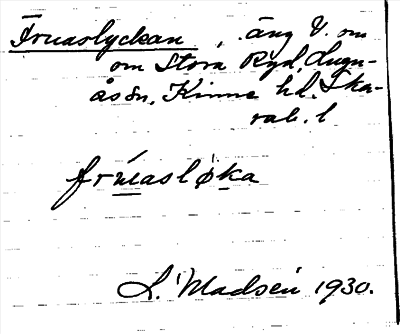 Fruaslyckan, äng V. om
om Stora Ryd, Lugn-
ås sn, Kinne hd. Ska-
rab. l
frúasløka
L. Madsén 1930.